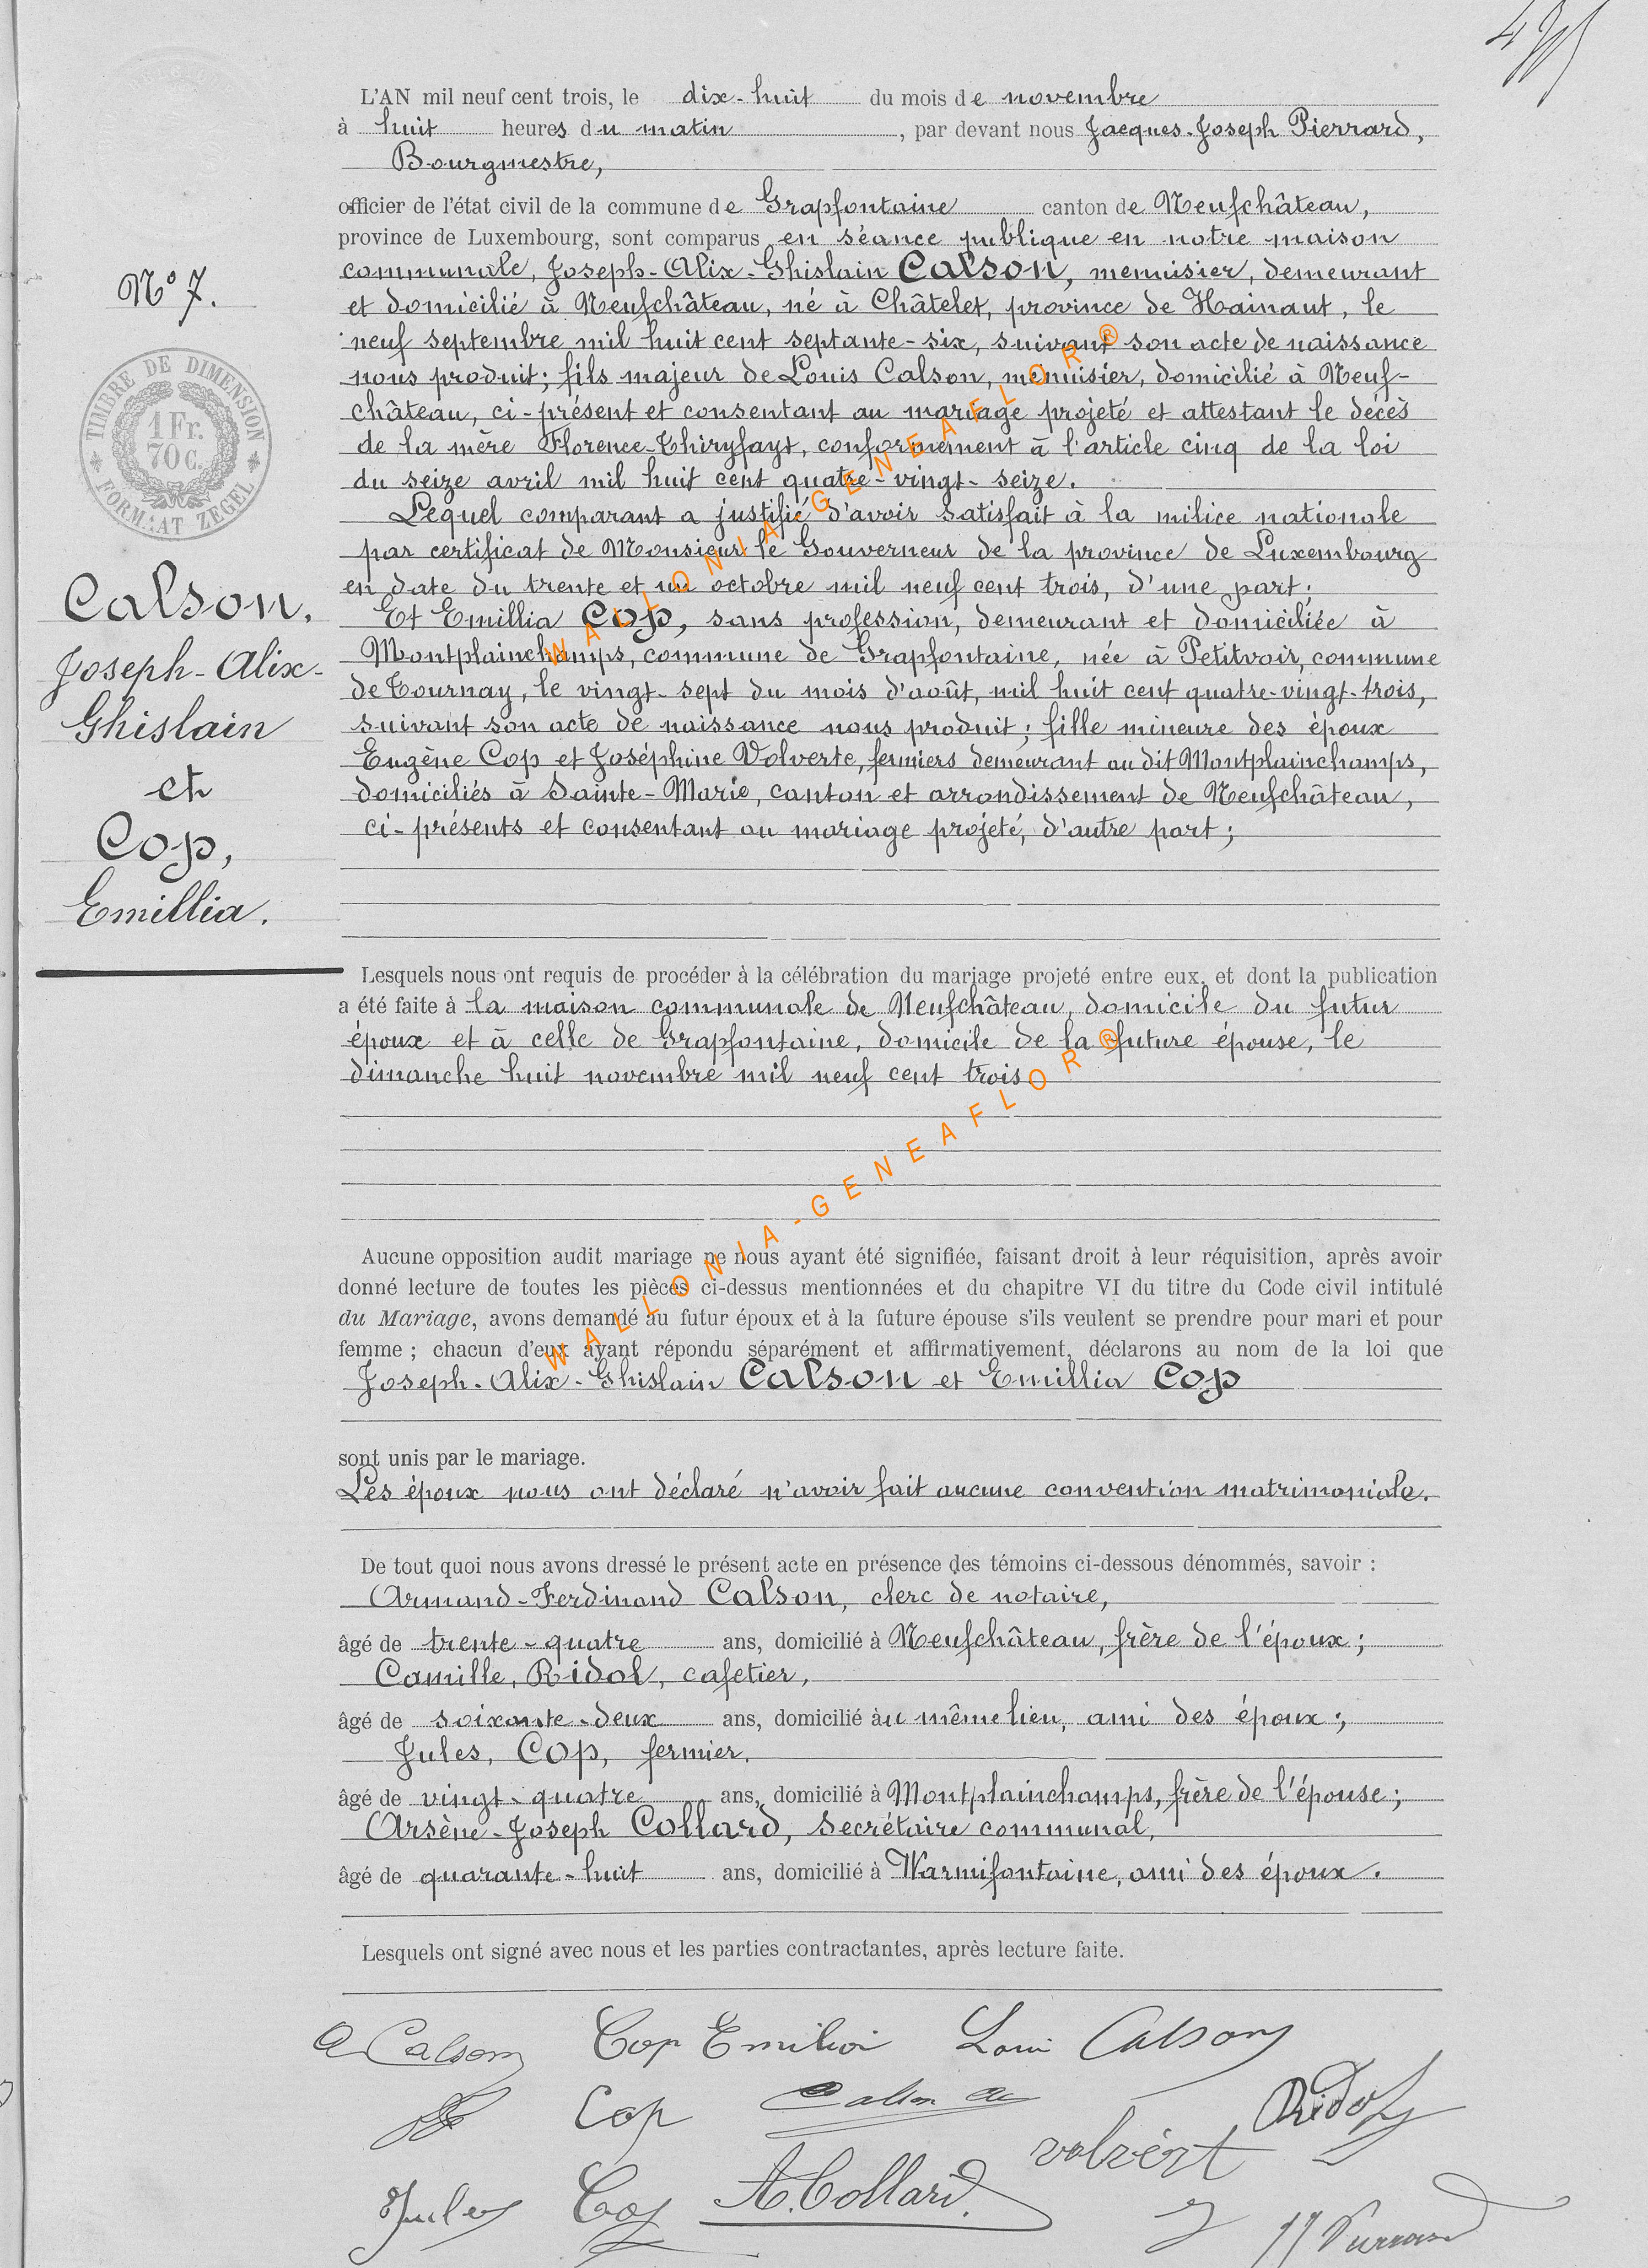 L'AN mil neuf cent trois, le dix-huit du mois de novembre
à huit heures du matin, par devant nous Jacques-Joseph Pierrard,
Bourgmestre,
officier de l'état civil de la commune de Grapfontaine canton de Neufchâteau,
province de Luxembourg, sont comparus en séance publique en notre maison
communale, Joseph-Alix-Ghislain Calson, menuisier, demeurant
et domicilié à Neufchâteau, né à Châtelet, province de Hainaut, le
neuf septembre mil huit cent septante-six, suivant son acte de naissance
nous produit; fils majeur de Louis Calson, menuisier, domicilié à Neuf-
château, ci-présent et consentant au mariage projeté et attestant le décès
de la mère Florence Thiryfayt, conformément à l'article cinq de la loi
du seize avril mil huit cent quatre-vingt-seize.
Lequel comparant a justifié d'avoir satisfait à la milice nationale
par certificat de Monsieur le Gouverneur de la province de Luxembourg
en date du trente et un octobre mil neuf cent trois, d'une part;
Et Emillia Cop, sans profession, demeurant et domiciliée à
Montplainchamps, commune de Grapfontaine, née à Petitvoir, commune
de Tournay, le vingt-sept du mois d'août, mil huit cent quatre-vingt-trois,
suivant son acte de naissance nous produit; fille mineure des époux
Eugène Cop et Joséphine Volverte, fermiers demeurant au dit Montplainchamps,
domiciliés à Sainte-Marie, canton et arrondissement de Neufchâteau,
ci-présents et consentant au mariage projeté, d'autre part;
N° 7.
TIMBRE DE DIMENSION
1 Fr.
70 C.
FORMAAT ZEGEL
Calson,
Joseph-Alix-
Ghislain
et
Cop,
Emillia.
Lesquels nous ont requis de procéder à la célébration du mariage projeté entre eux, et dont la publication
a été faite à la maison communale de Neufchâteau, domicile du futur
époux et à celle de Grapfontaine, domicile de la future épouse, le
dimanche huit novembre mil neuf cent trois
Aucune opposition audit mariage ne nous ayant été signifiée, faisant droit à leur réquisition, après avoir
donné lecture de toutes les pièces ci-dessus mentionnées et du chapitre VI du titre du Code civil intitulé
du Mariage, avons demandé au futur époux et à la future épouse s'ils veulent se prendre pour mari et pour
femme ; chacun d'eux ayant répondu séparément et affirmativement, déclarons au nom de la loi que
Joseph-Alix-Ghislain Calson et Emillia Cop
sont unis par le mariage.
Les époux nous ont déclaré n'avoir fait aucune convention matrimoniale.
De tout quoi nous avons dressé le présent acte en présence des témoins ci-dessous dénommés, savoir :
Armand-Ferdinand Calson, clerc de notaire,
âgé de trente-quatre ans, domicilié à Neufchâteau, frère de l'époux;
Camille, Ridol, cafetier,
âgé de soixante-deux ans, domicilié au même lieu, ami des époux;
Jules, Cop, fermier,
âgé de vingt-quatre ans, domicilié à Montplainchamps, frère de l'épouse;
Arsène-Joseph Collard, secrétaire communal,
âgé de quarante-huit ans, domicilié à Warmifontaine, ami des époux.
Lesquels ont signé avec nous et les parties contractantes, après lecture faite.
A Calson Cop Emilia Louis Calson
Cop Calson Ridol
volvért
Jules Cop A. Collard
JJ Pierrard
WALLONIA-GENEAFLOR®
WALLONIA-GENEAFLOR®